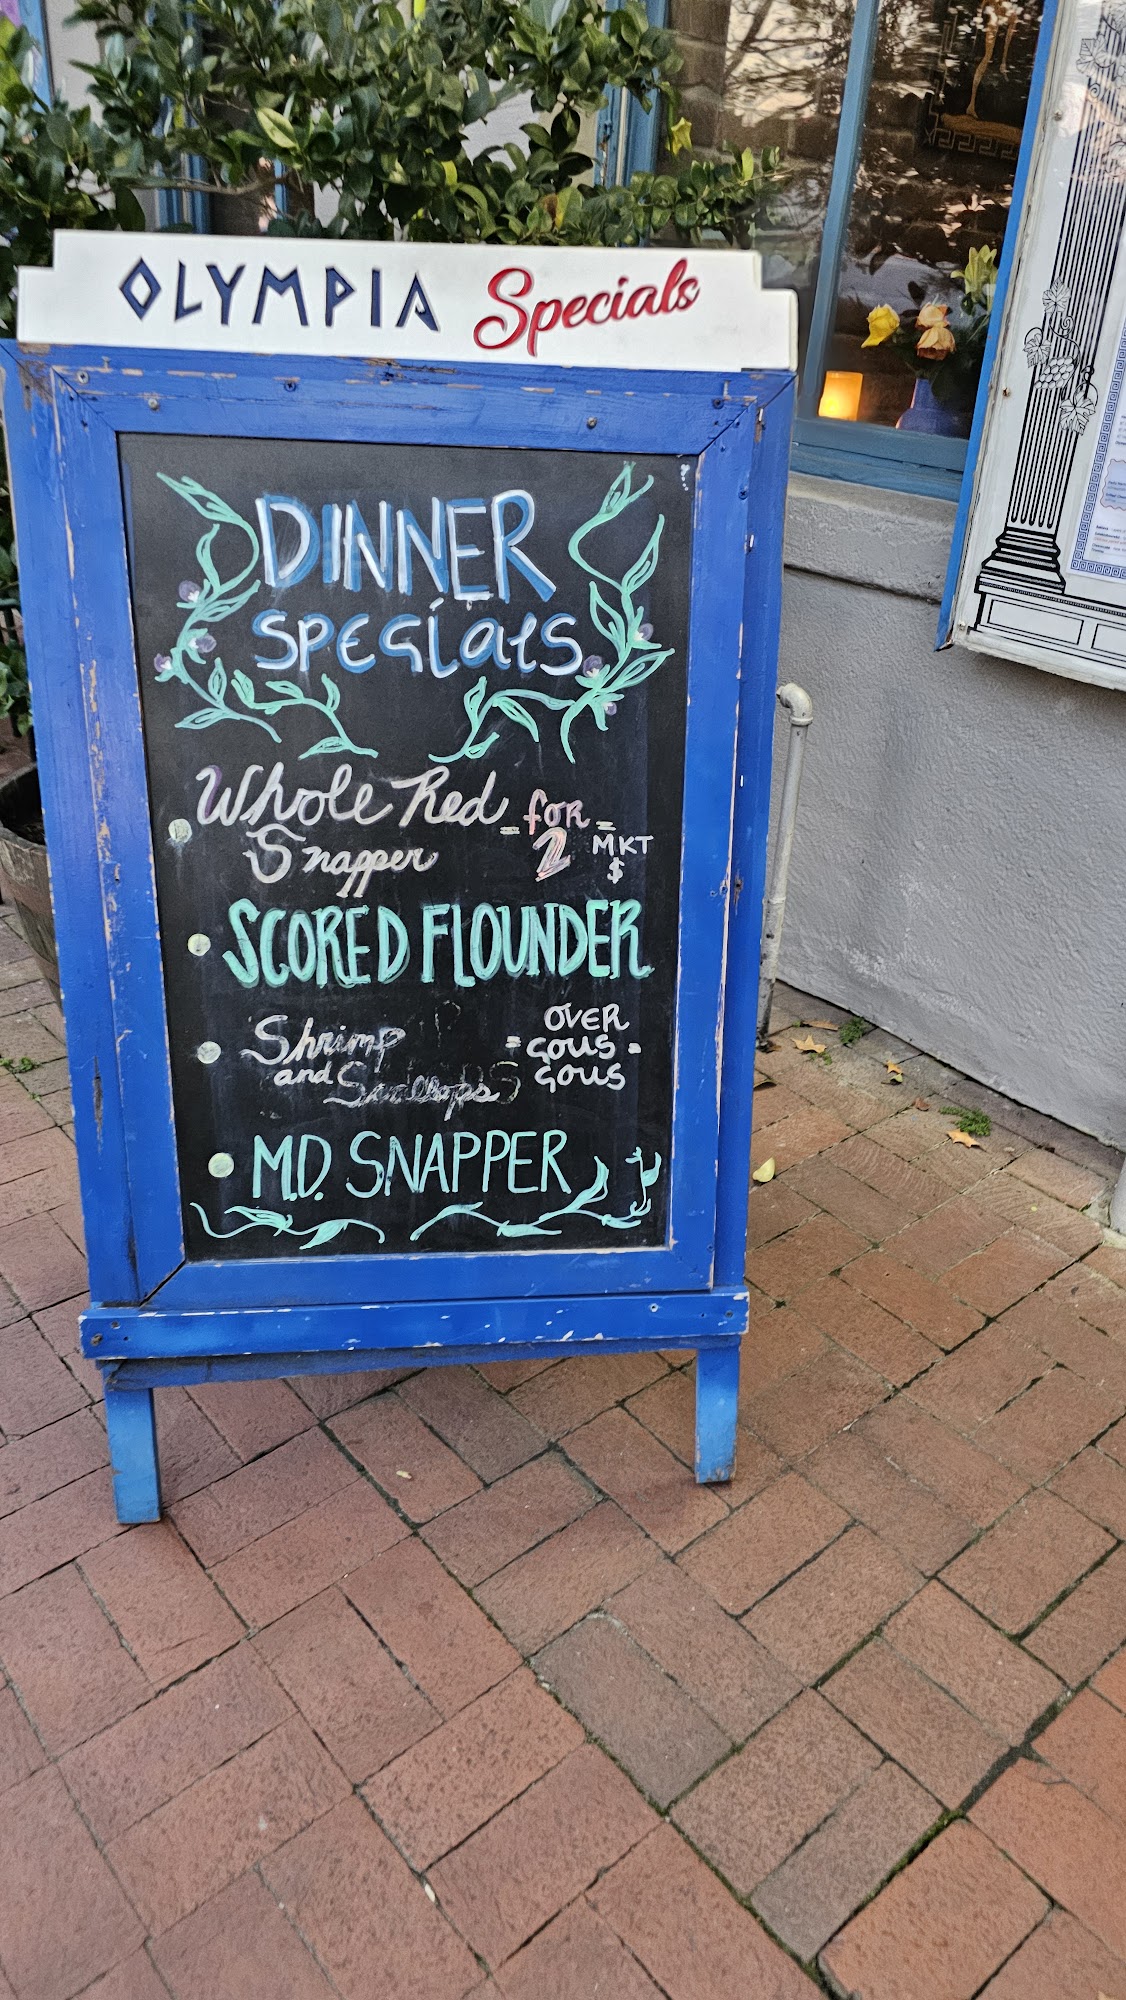 OLYMPIA Specials
DINNER
SPECIALS
Whole Red
Snapper
- for -
2
MKT
$
SCORED FLOUNDER
Shrimp
and Scallops
OVER
= COUS =
COUS
M.D. SNAPPER